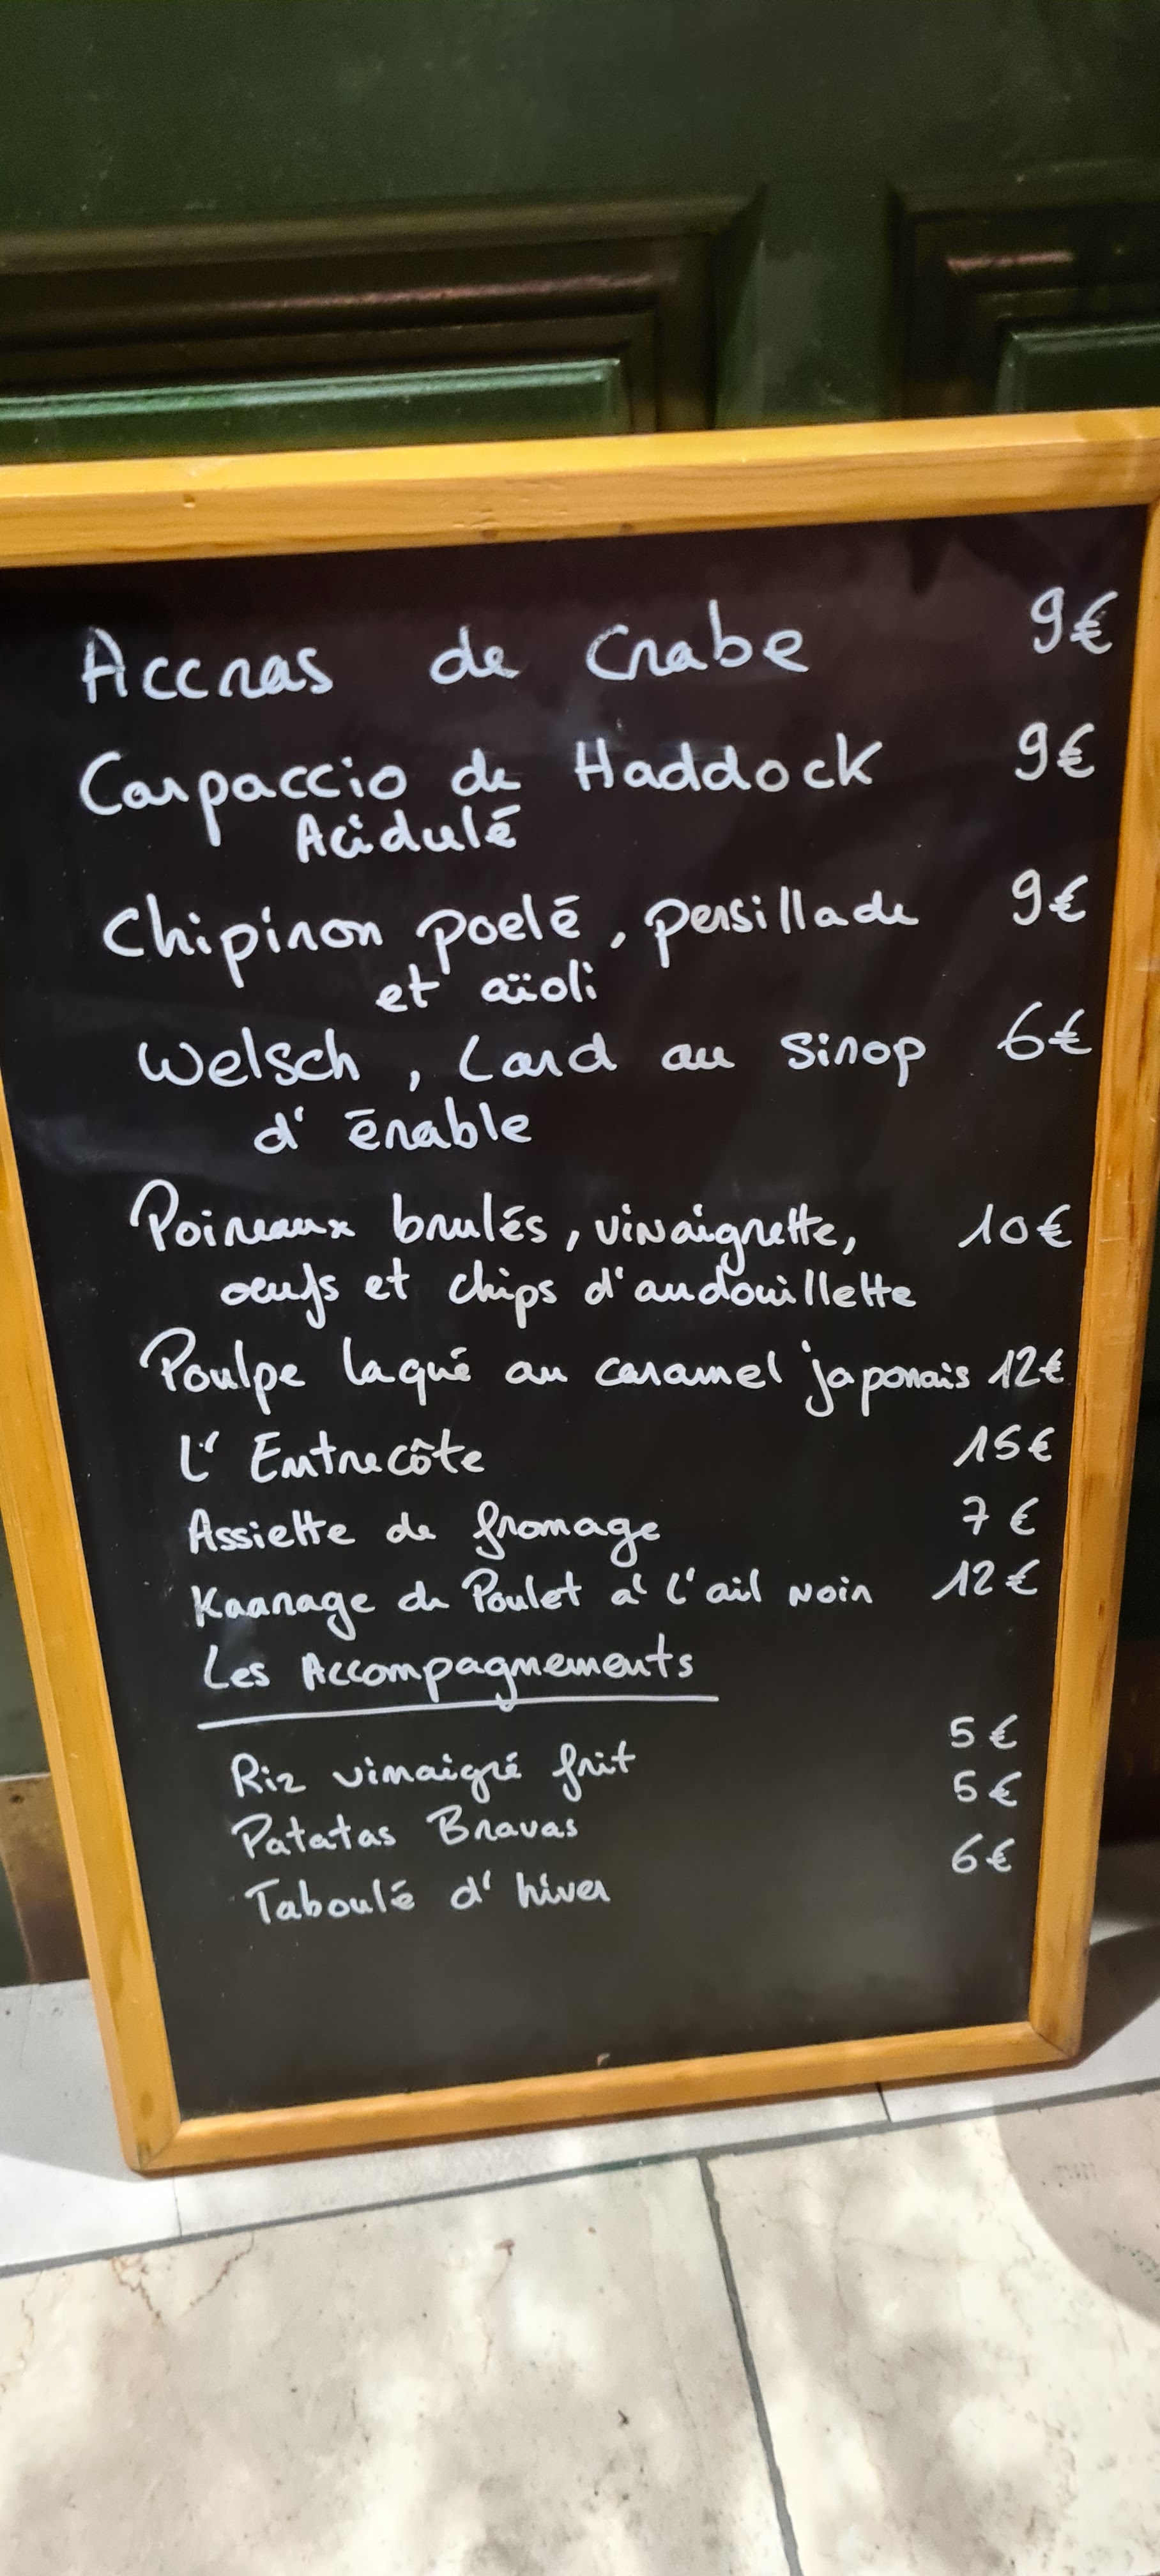 Accras de Crabe 9€
Carpaccio de Haddock 9€
Acidulé
Chipiron poelé, persillade 9€
et aïoli
Welsch, Lard au Sirop 6€
d'érable
Poireaux brulés, vinaigrette, 10€
oeufs et chips d'andouillette
Poulpe laqué au caramel japonais 12€
L'Entrecôte 15€
Assiette de fromage 7€
Kaarage de Poulet à l'ail noir 12€
Les Accompagnements
Riz vinaigré frit 5€
Patatas Bravas 5€
Taboulé d'hiver 6€